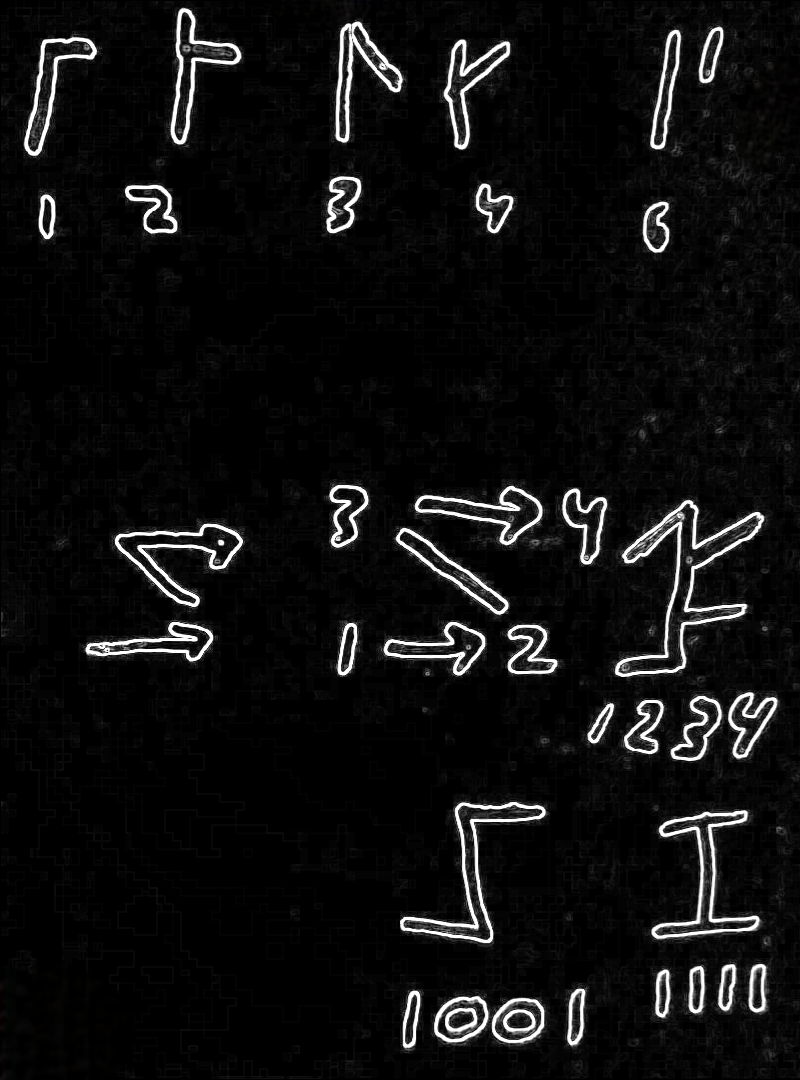 1 2 3 4 6
3 → 4
1 → 2
1234
1001 1111